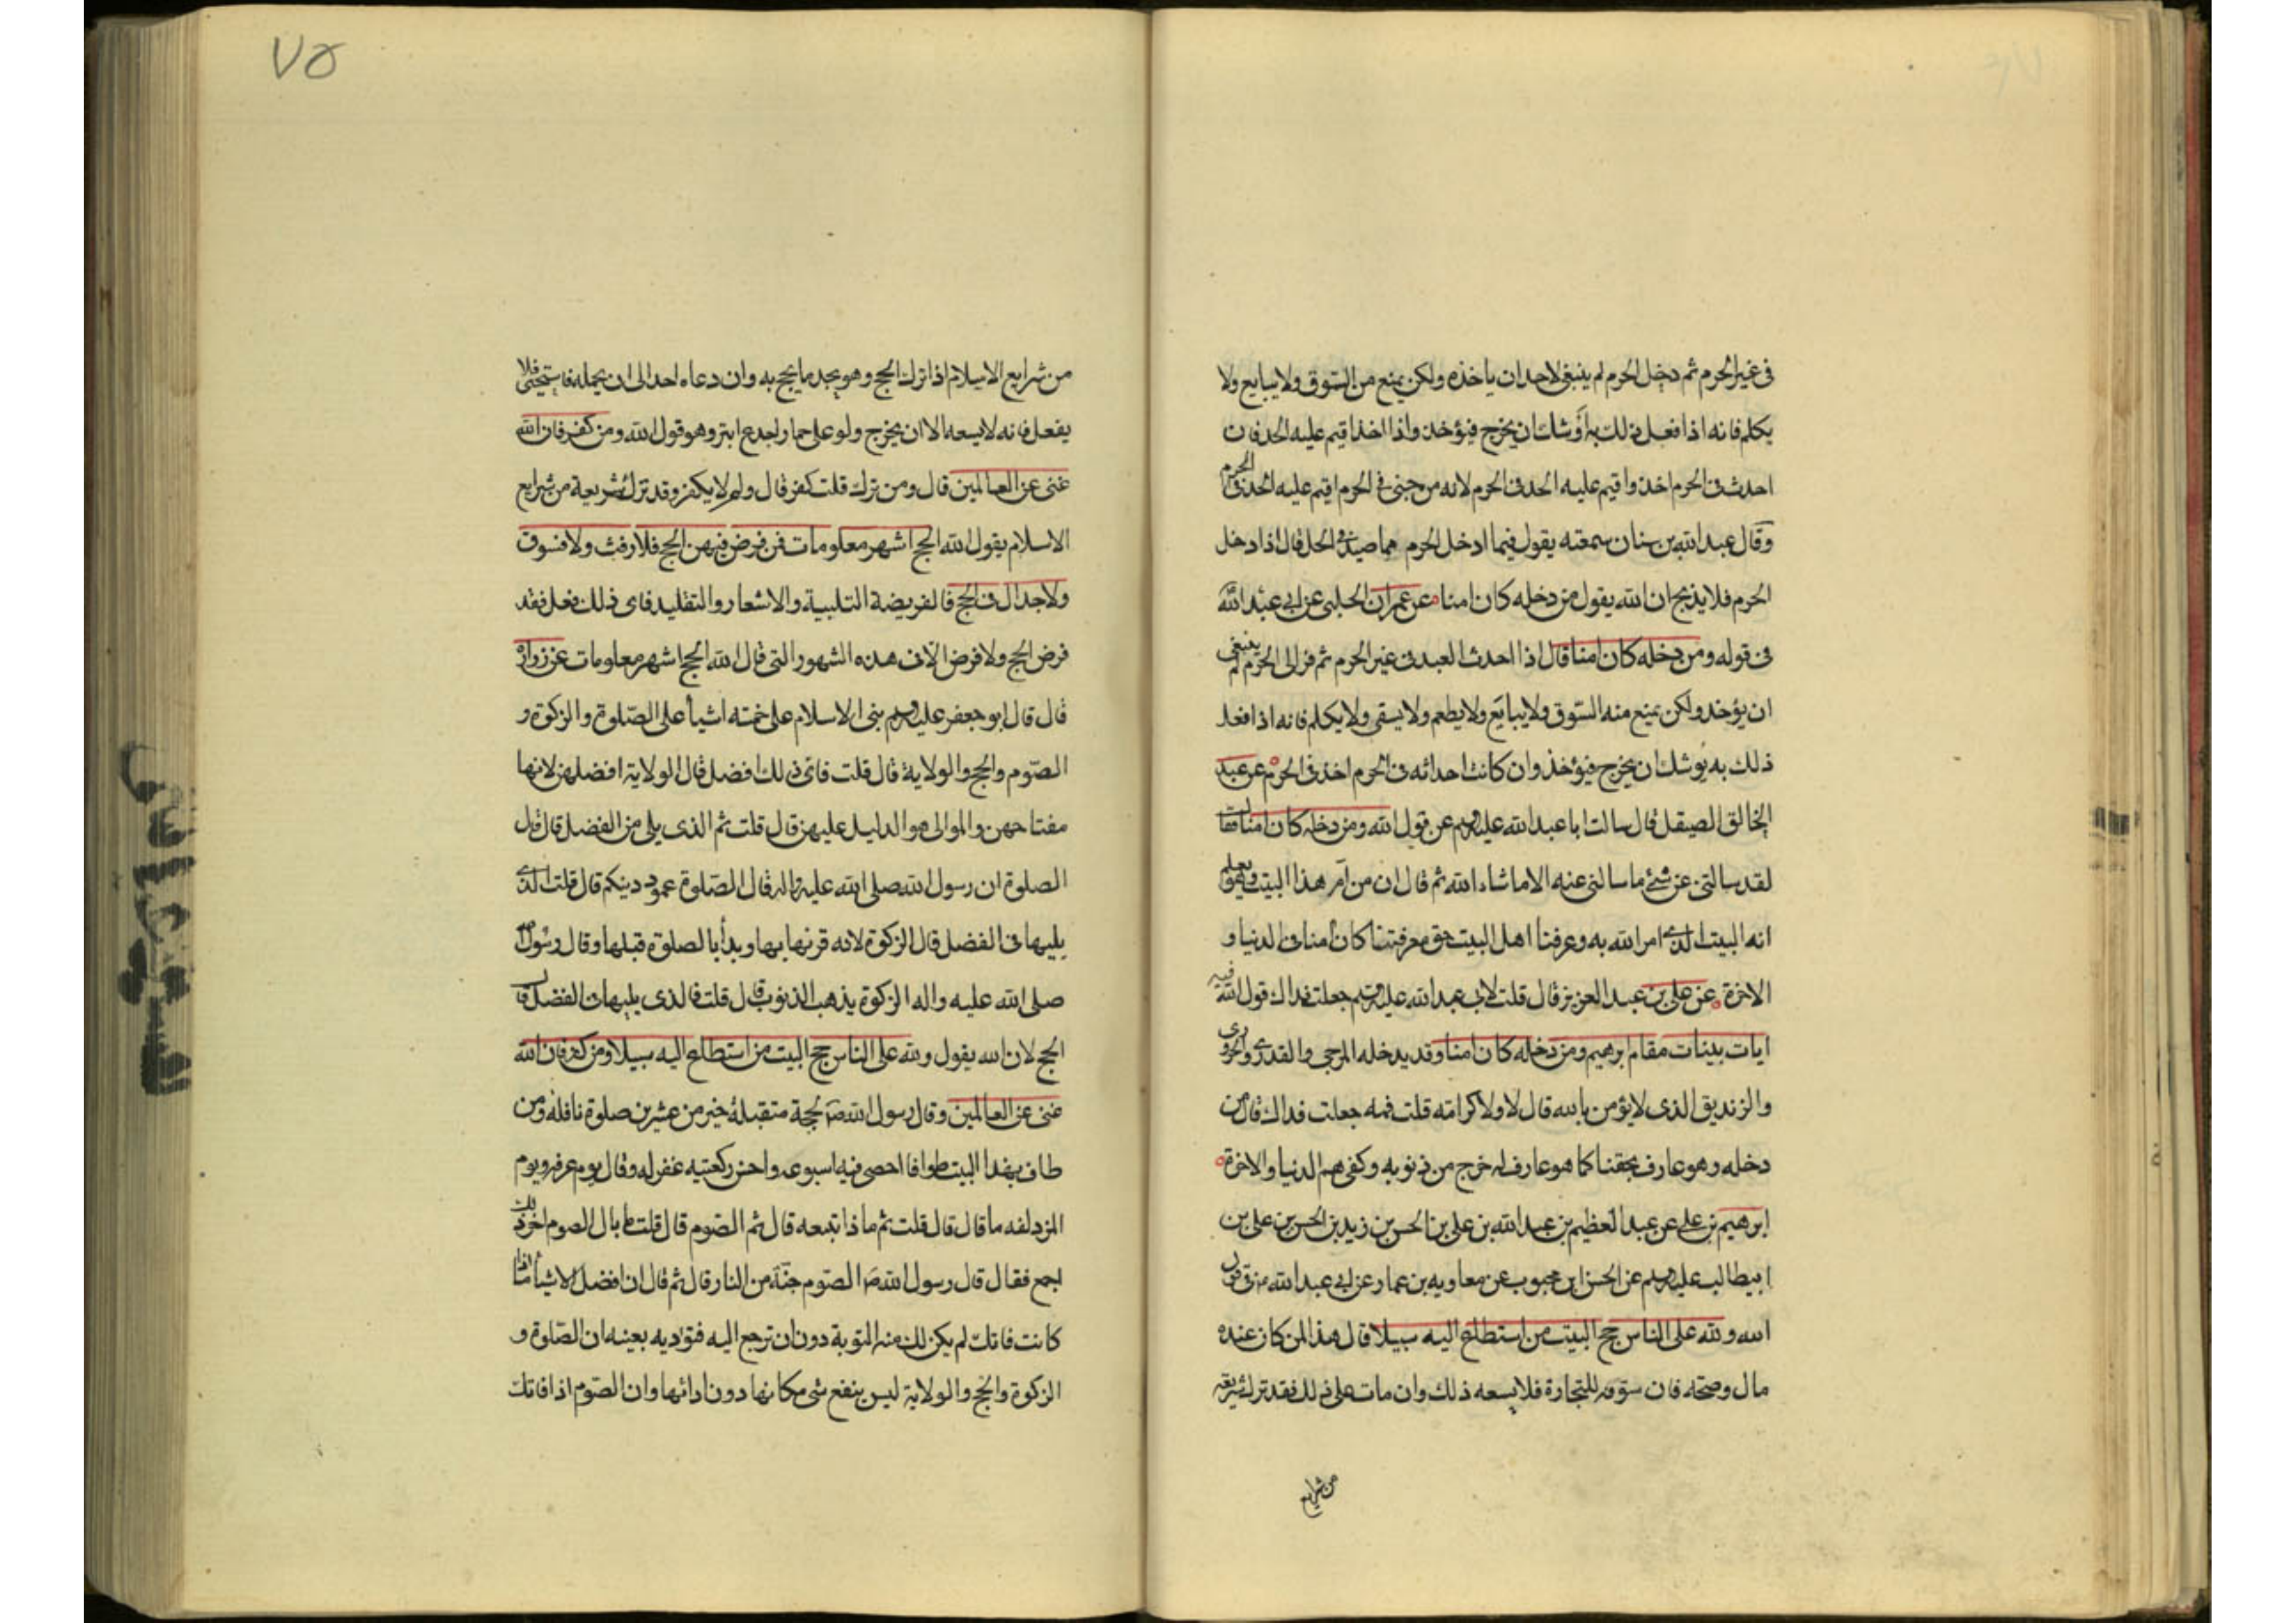 في غير الحرم ثم دخل الحرم لم ينبغي لاحد ان ياخذه ولكن يمنع من السوق ولا يبايع ولا
يكلم فانه اذا فعل ذلك به اوشك ان يخرج فيؤخذ واذا اخذ اقيم عليه الحد فان
احدث في الحرم اخذ واقيم عليه الحد في الحرم لانه من جنى في الحرم اقيم عليه الحد في الحرم
وقال عبد الله بن سنان سمعته يقول فيما ادخل الحرم مما صيد في الحل قال اذا دخل
الحرم فلا يذبح ان الله يقول من دخله كان امنا عن عمران الحلبي عن ابي عبد الله
في قوله ومن دخله كان امنا قال اذا احدث العبد في غير الحرم ثم فر الى الحرم لم ينبغي
ان يؤخذ ولكن يمنع منه السوق ولا يبايع ولا يطعم ولا يسقى ولا يكلم فانه اذا فعل
ذلك به يوشك ان يخرج فيؤخذ وان كانت احداثه في الحرم اخذ في الحرم عن عبد
الخالق الصيقل قال سالت ابا عبد الله عليه السلم عن قول الله ومن دخله كان امنا فقال
لقد سالتني عن شئ ما سالني عنه الا ما شاء الله ثم قال ان من ام هذا البيت وهو يعلم
انه البيت الذي امر الله به وعرفنا اهل البيت حق معرفتنا كان امنا في الدنيا و
الاخرة عن علي بن عبد العزيز قال قلت لابي عبد الله عليه السلم جعلت فداك قول الله فيه
ايات بينات مقام ابرهيم ومن دخله كان امنا وقد يدخله المرجى والقدرى والحرورى
والزنديق الذى لا يؤمن بالله قال لا ولا كرامته قلت فمه جعلت فداك قال من
دخله وهو عارف بحقنا كما هو عارف له خرج من ذنوبه وكفى هم الدنيا والاخرة
ابرهيم بن علي عن عبد العظيم بن عبد الله بن علي بن الحسن بن زيد بن الحسن بن علي بن
ابيطالب عليه السلم عن الحسن ابن محبوب عن معاويه بن عمار عن ابي عبد الله قول
الله ولله على الناس حج البيت من استطاع اليه سبيلا قال هذا لمن كان عنده
مال وصحته فان سوفه للتجارة فلا يسعه ذلك وان مات على ذلك فقد ترك شريعة
من شرايع
٧٥
من شرايع الاسلام اذا ترك الحج وهو يجد ما يحج به وان دعاه احد الى ان يحمله فاستحيى فلا
يفعل فانه لا يسعه الا ان يخرج ولو على حمار اجدع ابتر وهو قول الله ومن كفر فان الله
غنى عن العالمين قال ومن ترك قلت كفر قال ولم لا يكفر وقد ترك شريعة من شرايع
الاسلام يقول الله الحج اشهر معلومات فمن فرض فيهن الحج فلا رفث ولا فسوق
ولا جدال في الحج فالفريضة التلبية والاشعار والتقليد فاى ذلك فعل فقد
فرض الحج ولا فرض الا فى هذه الشهور التى قال الله الحج اشهر معلومات عن زرارة
قال قال ابو جعفر عليه السلم بنى الاسلام على خمته اشيأ على الصلوة والزكوة و
الصوم والحج والولاية قال قلت فاى ذلك افضل قال الولاية افضلهن لانها
مفتاحهن والوالى هو الدليل عليهن قال قلت ثم الذى يلى من الفضل قال قال
الصلوة ان رسول الله صلى الله عليه واله قال الصلوة عمود دينكم قال قلت الذى
يليها فى الفضل قال الزكوة لانه قرنها بها وبدأ بالصلوة قبلها وقال رسول الله
صلى الله عليه واله الزكوة يذهب الذنوب قال قلت فالذى يليها فى الفضل قال
الحج لان الله يقول ولله على الناس حج البيت من استطاع اليه سبيلا ومن كفر فان الله
غنى عن العالمين وقال رسول الله ص لحجة متقبلة خير من عشرين صلوة نافلة ومن
طاف بهذا البيت طوافا احصى فيه اسبوعه واحسن ركعتيه غفر له وقال يوم عرفه ويوم
المزدلفه ما قال قال قلت ثم ماذا تبعه قال ثم الصوم قال قلت ما بال الصوم اخر ذلك
اجمع فقال قال رسول الله ص الصوم جنة من النار قال ثم قال ان افضل الاشيأ ما اذا
كانت فاتك لم يكن لك منه التوبة دون ان ترجع اليه فتؤديه بعينه ان الصلوة و
الزكوة والحج والولاية ليس ينفع شى مكانها دون ادائها وان الصوم اذا فاتك